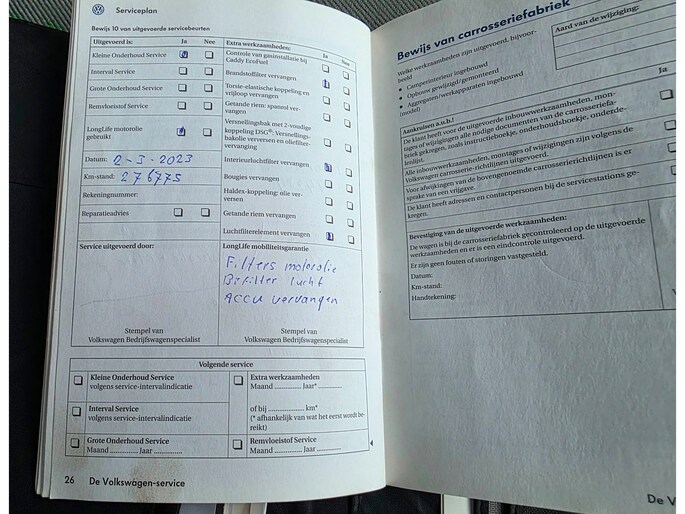 Serviceplan
Bewijs 10 van uitgevoerde servicebeurten
Uitgevoerd is: Ja Nee
Kleine Onderhoud Service
Interval Service
Grote Onderhoud Service
Remvloeistof Service
LongLife motorolie
gebruikt
Datum: 2-3-2023
Km-stand: 276775
Rekeningnummer:
Reparatieadvies
Extra werkzaamheden:
Controle van gasinstallatie bij Ja Nee
Caddy EcoFuel
Brandstoffilter vervangen
Torsie-elastische koppeling en
vrijloop vervangen
Getande riem: spanrol ver-
vangen
Versnellingsbak met 2-voudige
koppeling DSG®: Versnellings-
bakolie verversen en oliefilter-
vervanging
Interieurluchtfilter vervangen
Bougies vervangen
Haldex-koppeling: olie ver-
versen
Getande riem vervangen
Luchtfilterelement vervangen
Service uitgevoerd door:
Stempel van
Volkswagen Bedrijfswagenspecialist
LongLife mobiliteitsgarantie
Filters motorolie
Br filter lucht
Accu vervangen
Stempel van
Volkswagen Bedrijfswagenspecialist
Volgende service
Kleine Onderhoud Service
volgens service-intervalindicatie
Interval Service
volgens service-intervalindicatie
Grote Onderhoud Service
Maand .............. Jaar ..............
Extra werkzaamheden
Maand .............. Jaar* ..............
of bij .................... km*
(* afhankelijk van wat het eerst wordt be-
reikt)
Remvloeistof Service
Maand .............. Jaar ..............
26 De Volkswagen-service
Bewijs van carrosseriefabriek
Welke werkzaamheden zijn uitgevoerd, bijvoor-
beeld
• Camperinterieur ingebouwd
• Opbouw gewijzigd/gemonteerd
• Aggregaten/werkapparaten ingebouwd
(model)
Aard van de wijziging:
Aankruisen a.u.b.! Ja
De klant heeft voor de uitgevoerde inbouwwerkzaamheden, mon-
tages of wijzigingen alle nodige documenten van de carrosseriefa-
briek gekregen, zoals instructieboekje, onderhoudsboekje, onderde-
lenlijst.
Alle inbouwwerkzaamheden, montages of wijzigingen zijn volgens de
Volkswagen carrosserie-richtlijnen uitgevoerd.
Voor afwijkingen van de bovengenoemde carrosserierichtlijnen is er
sprake van een vrijgave.
De klant heeft adressen en contactpersonen bij de servicestations ge-
kregen.
Bevestiging van de uitgevoerde werkzaamheden:
De wagen is bij de carrosseriefabriek gecontroleerd op de uitgevoerde
werkzaamheden en er is een eindcontrole uitgevoerd.
Er zijn geen fouten of storingen vastgesteld.
Datum:
Km-stand:
Handtekening:
De V